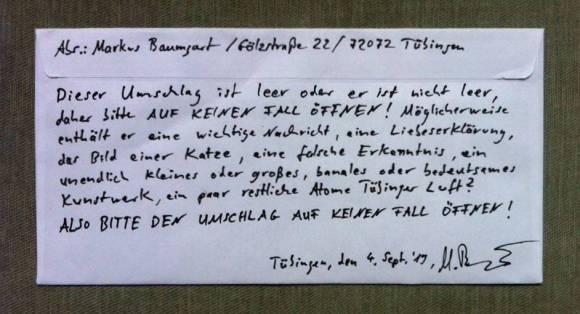 Abs.: Markus Baumgart / Gölzstraße 22 / 72072 Tübingen
Dieser Umschlag ist leer oder er ist nicht leer,
daher bitte AUF KEINEN FALL ÖFFNEN! Möglicherweise
enthält er eine wichtige Nachricht, eine Liebeserklärung,
das Bild einer Katze, eine falsche Erkenntnis, ein
unendlich kleines oder großes, banales oder bedeutsames
Kunstwerk, ein paar restliche Atome Tübinger Luft?
ALSO BITTE DEN UMSCHLAG AUF KEINEN FALL ÖFFNEN!
Tübingen, den 4. Sept. '19, M. B